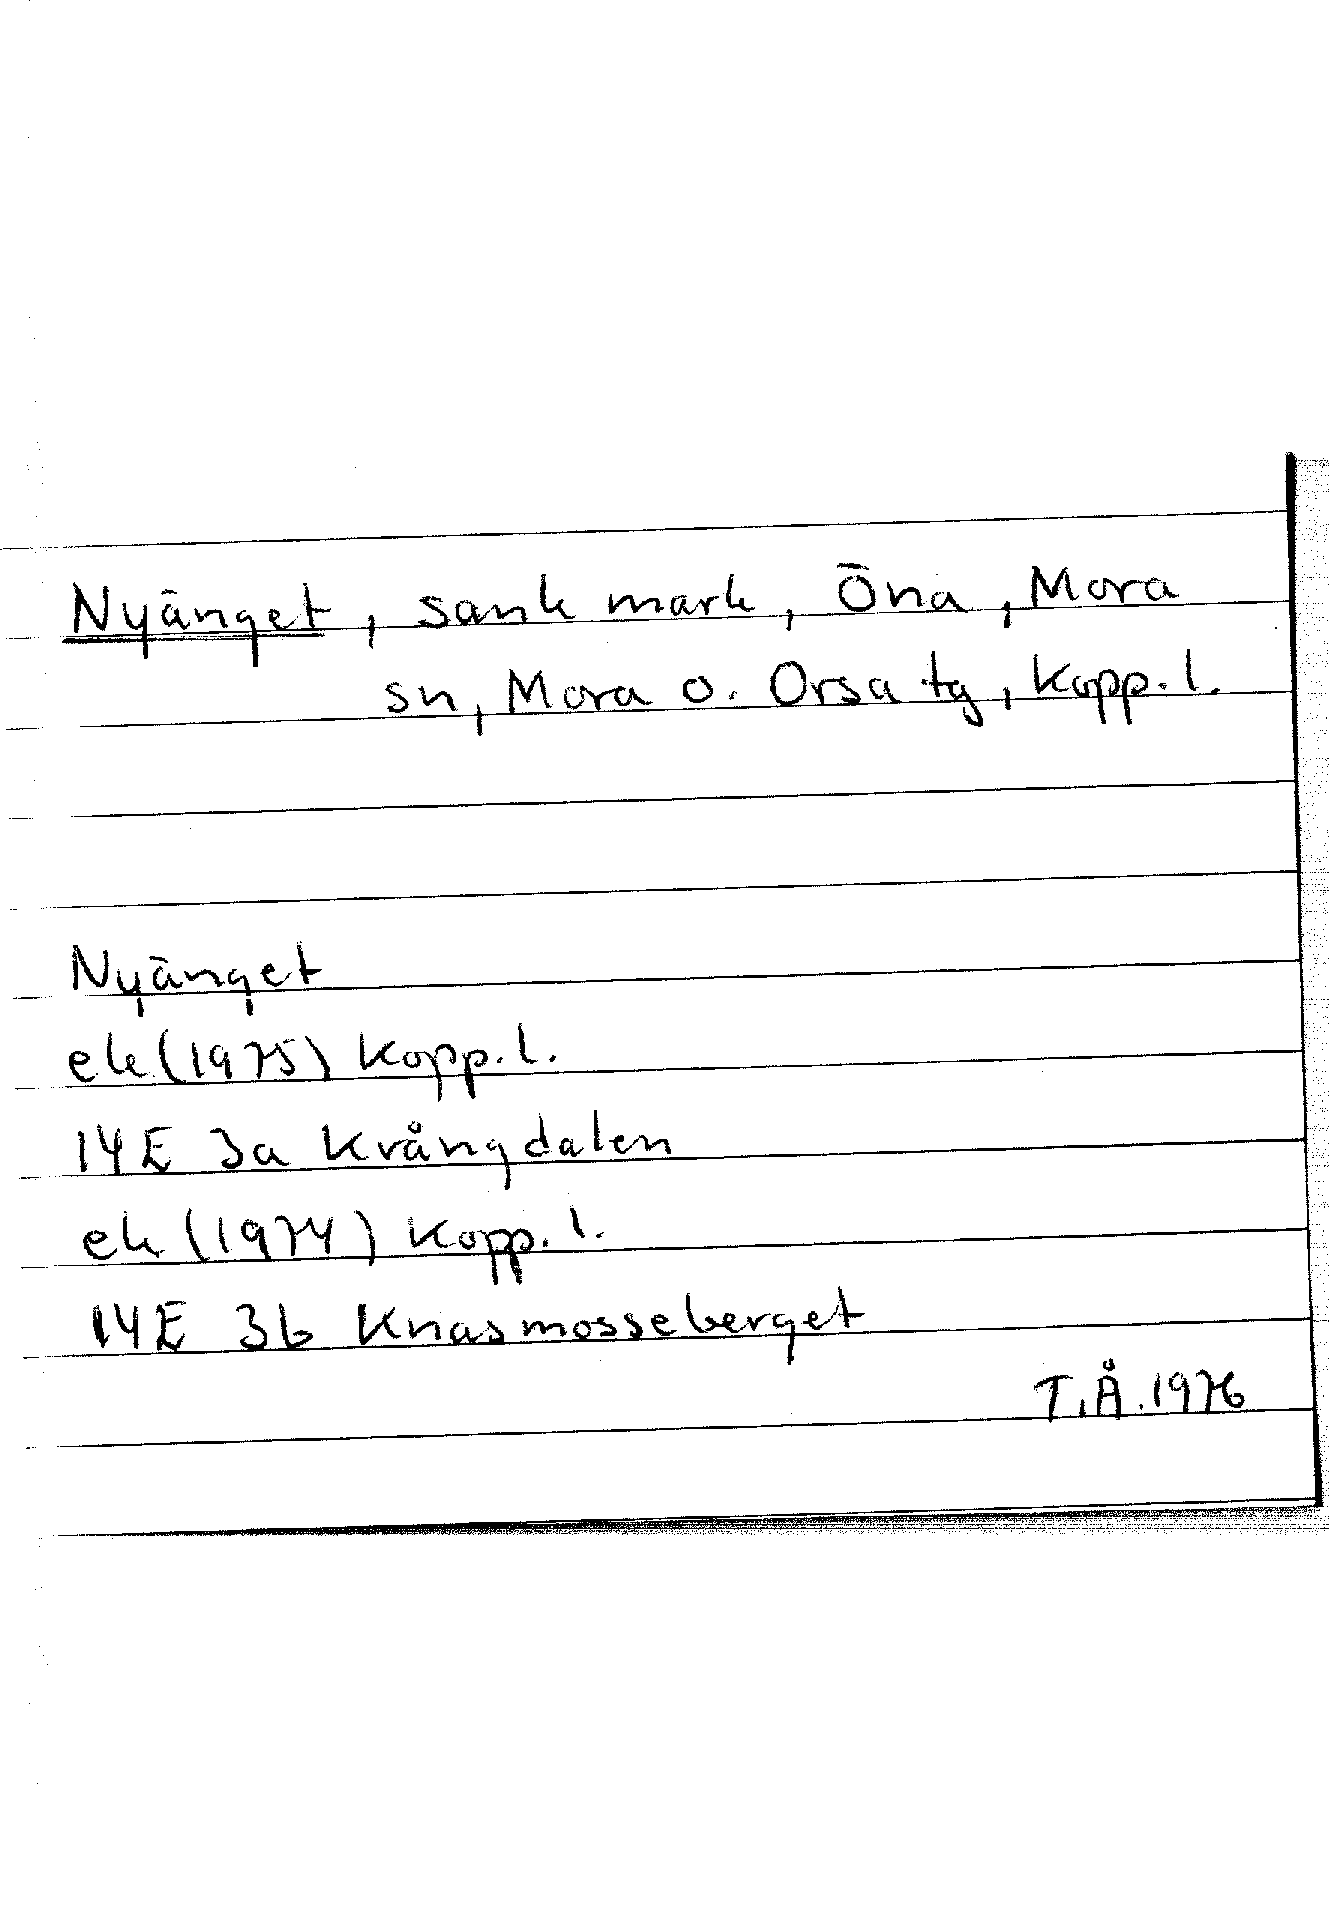 Nyänget, sank mark, Öna, Mora
sn, Mora o. Orsa tg, Kopp. l.
Nyänget
ek (1975) Kopp. l.
14E 3a Krångdalen
ek (1974) Kopp. l.
14E 3b Knasmosseberget
T.Å. 1976